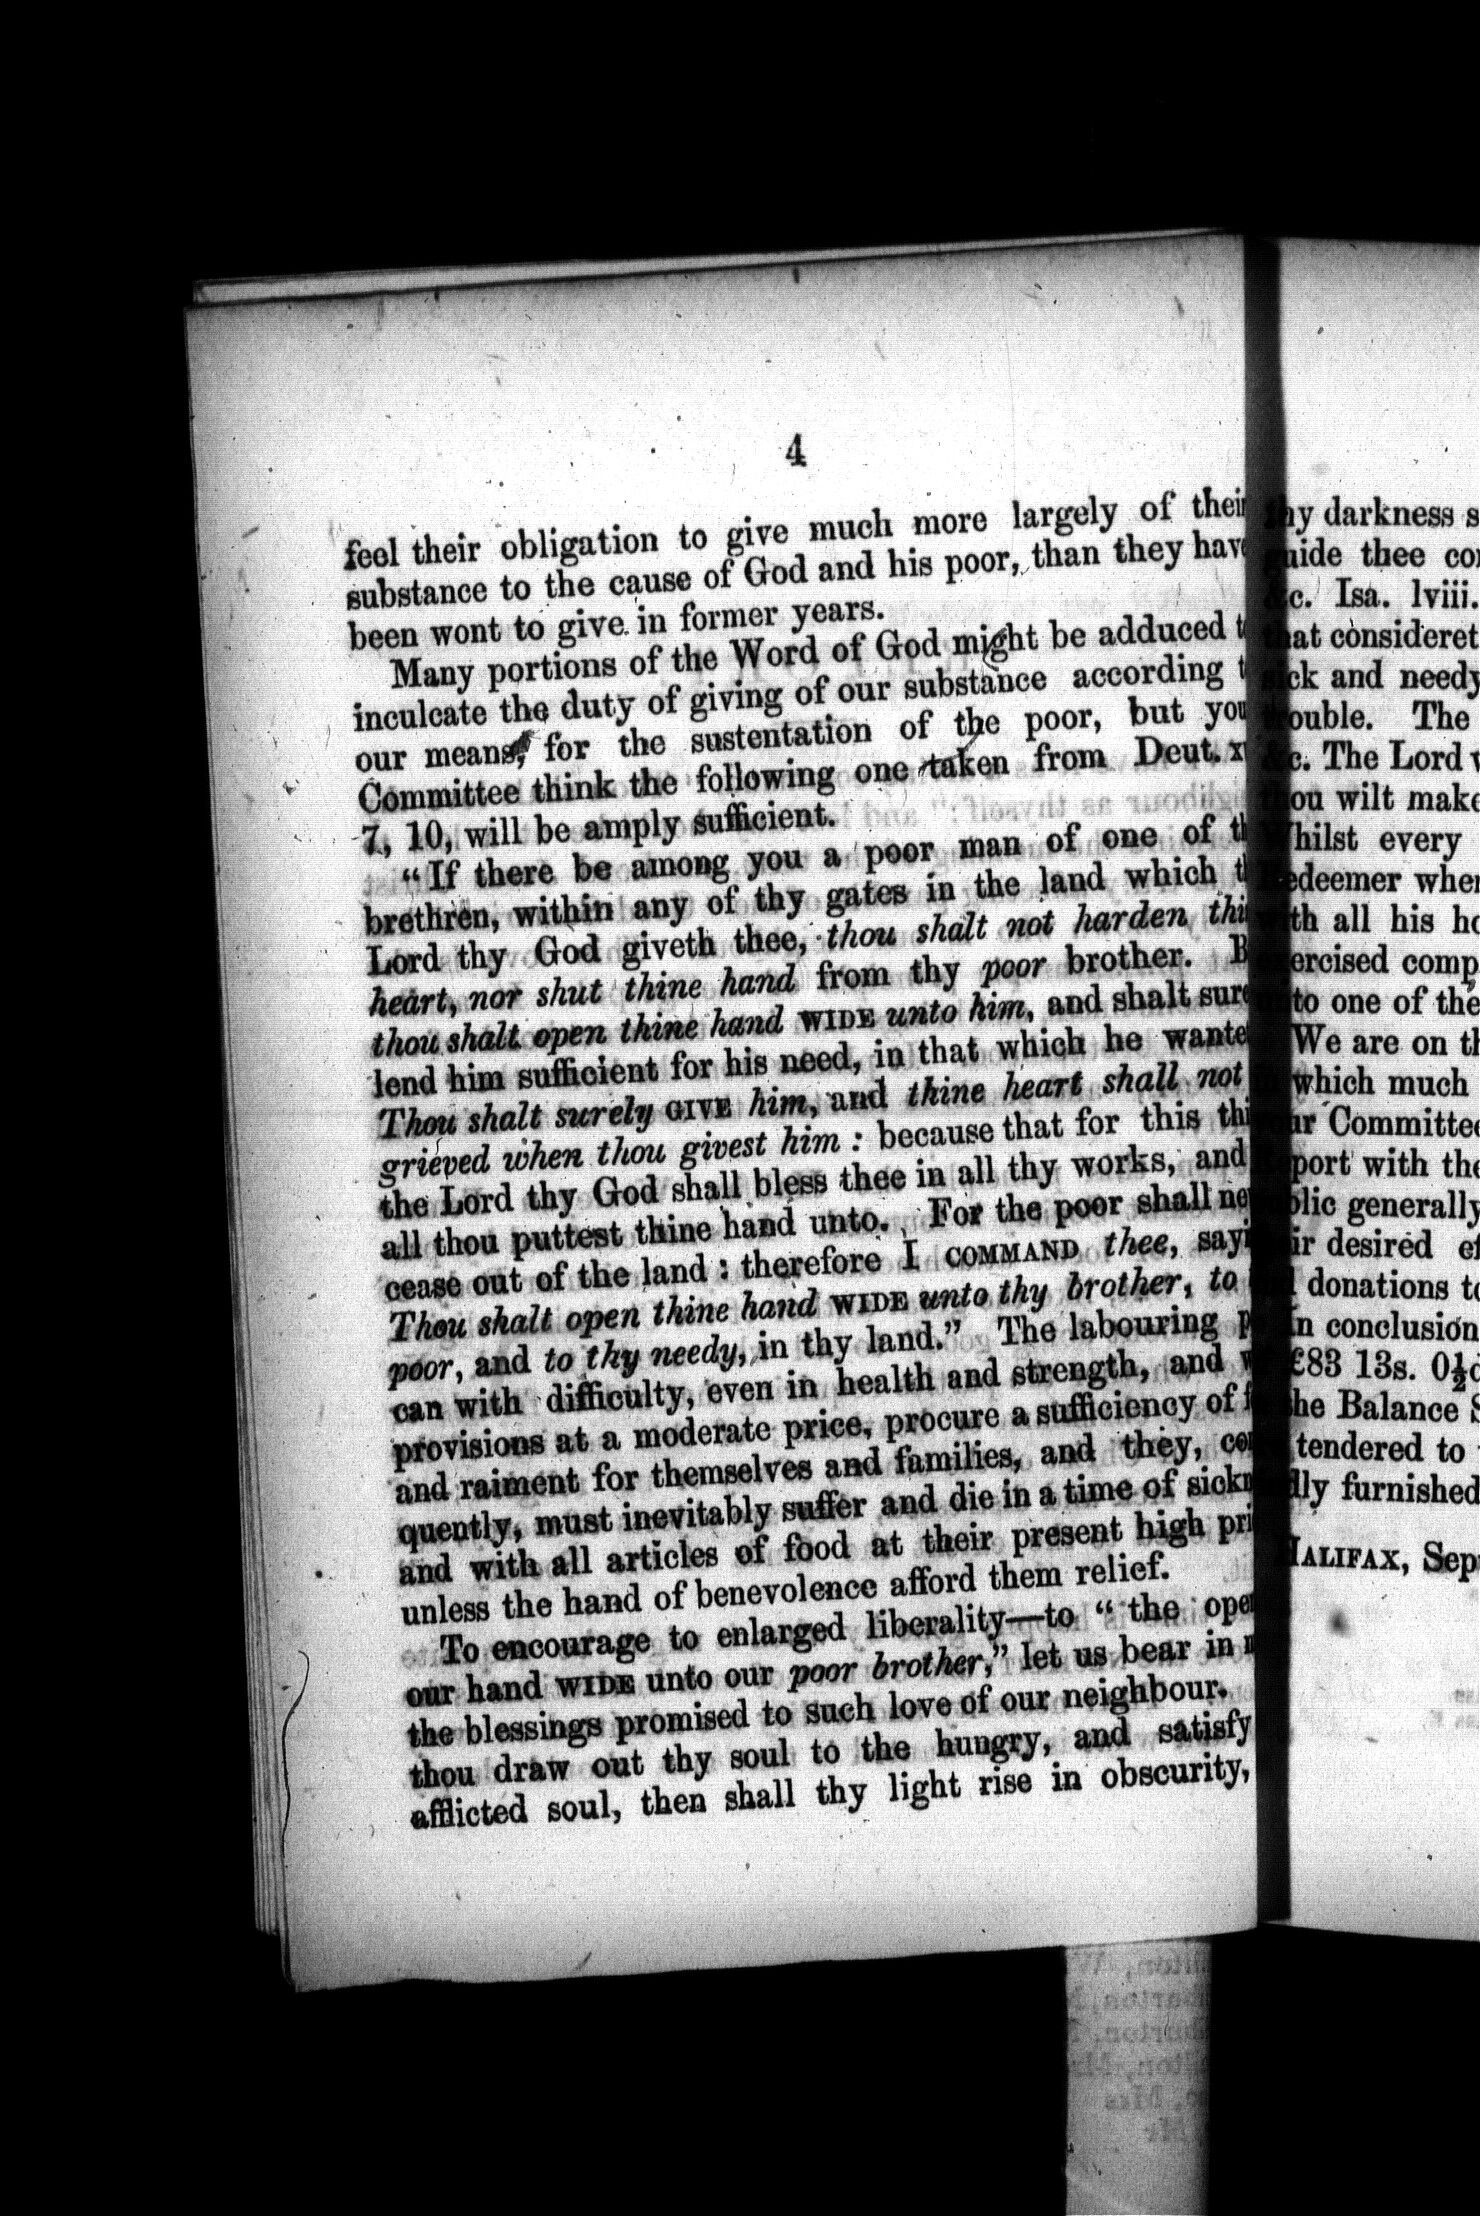 4
feel their obligation to give much more largely of their
substance to the cause of God and his poor, than they have
been wont to give in former years.
Many portions of the Word of God might be adduced t
inculcate the duty of giving of our substance according t
our means, for the sustentation of the poor, but you
Committee think the following one taken from Deut. x
7, 10, will be amply sufficient.
"If there be among you a poor man of one of th
brethren, within any of thy gates in the land which t
Lord thy God giveth thee, thou shalt not harden thi
heart, nor shut thine hand from thy poor brother. B
thou shalt open thine hand WIDE unto him, and shalt sure
lend him sufficient for his need, in that which he wante
Thou shalt surely GIVE him, and thine heart shall not
grieved when thou givest him : because that for this thi
the Lord thy God shall bless thee in all thy works, and
all thou puttest thine hand unto. For the poor shall ne
cease out of the land : therefore I COMMAND thee, sayi
Thou shalt open thine hand WIDE unto thy brother, to
poor, and to thy needy, in thy land." The labouring p
can with difficulty, even in health and strength, and w
provisions at a moderate price, procure a sufficiency of f
and raiment for themselves and families, and they, con
quently, must inevitably suffer and die in a time of sickn
and with all articles of food at their present high pri
unless the hand of benevolence afford them relief.
To encourage to enlarged liberality—to "the ope
our hand WIDE unto our poor brother," let us bear in
the blessings promised to such love of our neighbour.
thou draw out thy soul to the hungry, and satisfy
afflicted soul, then shall thy light rise in obscurity,
thy darkness s
guide thee con
&c. Isa. lviii.
that consideret
sick and needy
trouble. The
&c. The Lord
thou wilt make
Whilst every
Redeemer when
with all his
exercised comp
unto one of the
We are on th
which much
your Committee
Report with the
public generally
desired ef
donations to
In conclusion
£83 13s. 0½d
the Balance S
tendered to
furnished
HALIFAX, Sep